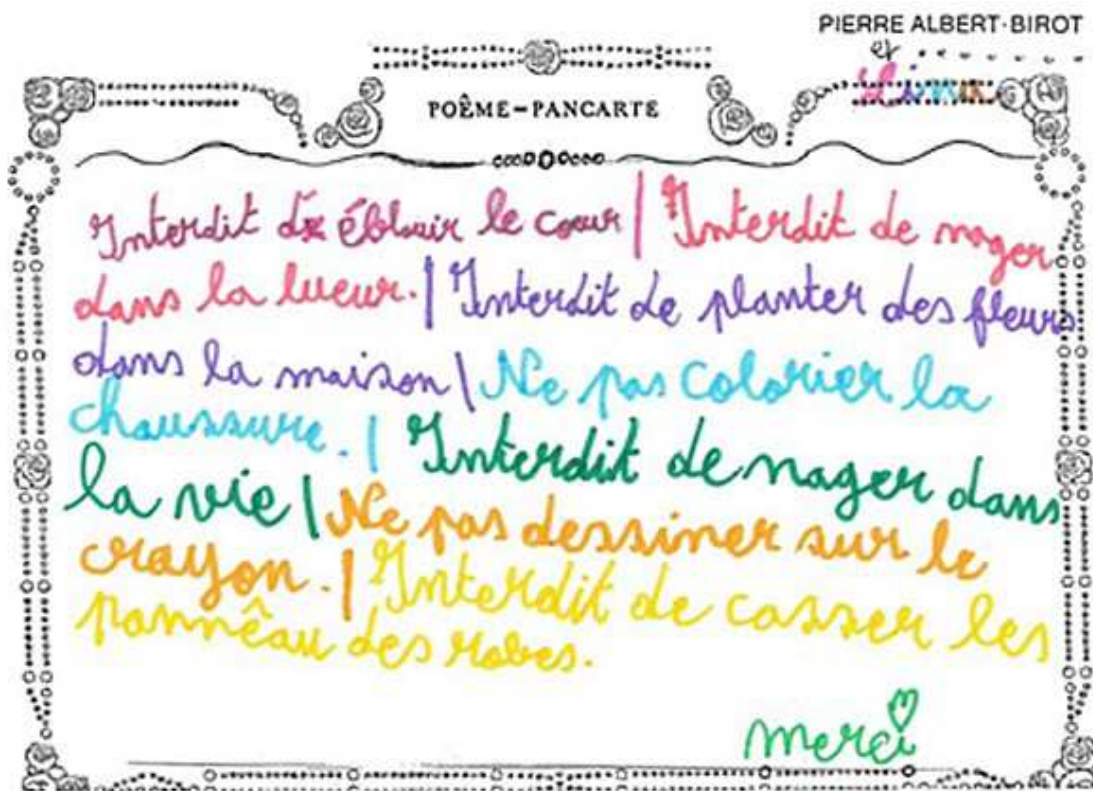 PIERRE ALBERT-BIROT
et
POÊME-PANCARTE
Interdit d' éblouir le cœur | Interdit de nager
dans la lueur. | Interdit de planter des fleurs
dans la maison | Ne pas colorier la
chaussure. | Interdit de nager dans
la vie | Ne pas dessiner sur le
crayon. | Interdit de casser les
pannêau des robes.
merci